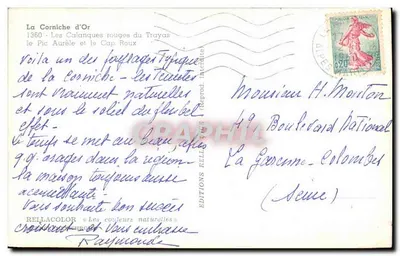 La Corniche d'Or
1360 - Les Calanques rouges du Trayas
le Pic Aurèle et le Cap Roux
Voilà un des paysages typique
de la Corniche - les teintes
sont vraiment naturelles
et sous le soleil du plus bel
effet -
Le temps se met au beau après
q.q. orages dans la région
la maison toujours aussi
accueillante -
Vous souhaite bon succès
RELLACOLOR « Les couleurs naturelles »
croissant et vous embrasse
Raymonde
EDITIONS RELLA
Monsieur H. Menton
49 Boulevard National
La Garenne-Colombes
(Seine)
0,20
CARPHIL